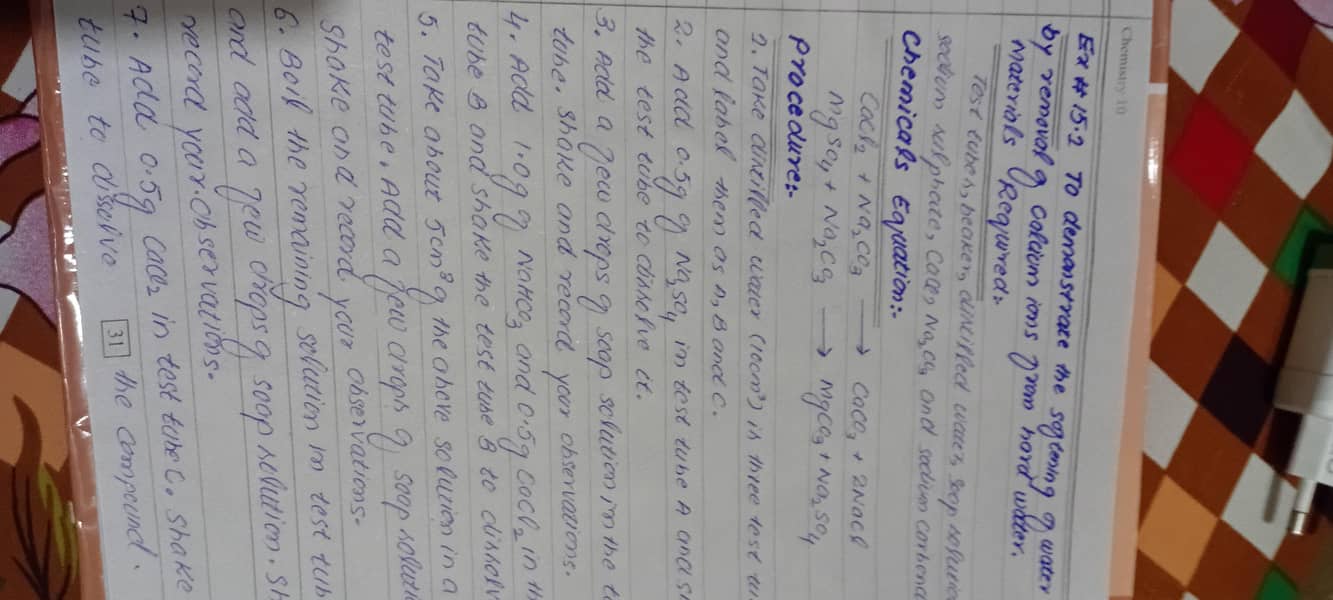 Chemistry 10
Ex # 15.2 To demonstrate the softening of water
by removal of calcium ions from hard water.
Materials Required:-
Test tubes, beaker, distilled water, soap solution
sodium sulphate, CaCl₂, Na₂CO₃ and sodium carbona
Chemicals Equation:-
CaCl₂ + Na₂CO₃ → CaCO₃ + 2NaCl
MgSO₄ + Na₂CO₃ → MgCO₃ + Na₂SO₄
Procedure:-
1. Take distilled water (10cm³) in three test tu
and label them as A, B and C.
2. Add 0.5g of Na₂SO₄ in test tube A and sh
the test tube to dissolve it.
3. Add a few drops of soap solution in the t
tube. Shake and record your observations.
4. Add 1.0g of NaHCO₃ and 0.5g CaCl₂ in th
tube B and shake the test tube B to dissolv
5. Take about 5cm³ of the above solution in a
test tube. Add a few drops of soap solut
shake and record your observations.
6. Boil the remaining solution in test tub
and add a few drops of soap solution. Sh
record your observations.
7. Add 0.5g CaCl₂ in test tube C. Shake
tube to dissolve the compound.
31